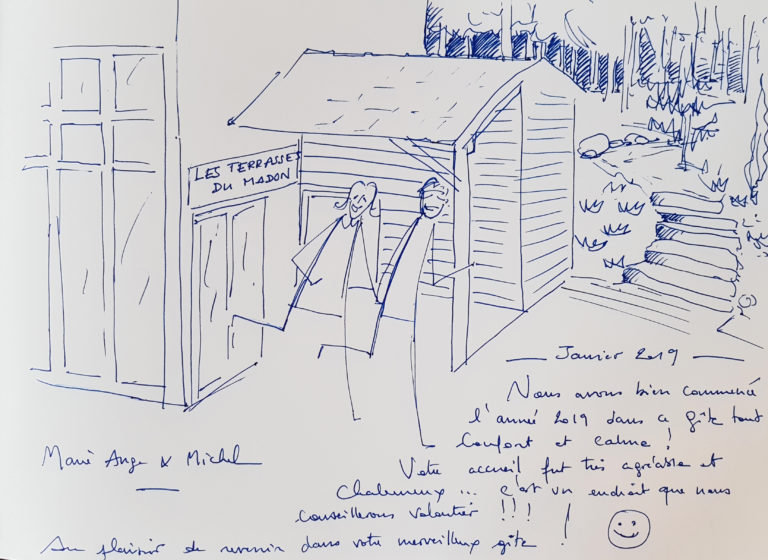 LES TERRASSES
DU MADON
Janvier 2019
Nous avons bien commencé
l'année 2019 dans ce gîte tout
Confort et calme !
Votre accueil fut très agréable et
Chaleureux ... c'est un endroit que nous
conseillerons volontier !!! !
Marie Ange & Michel
Au plaisir de revenir dans votre merveilleux gîte